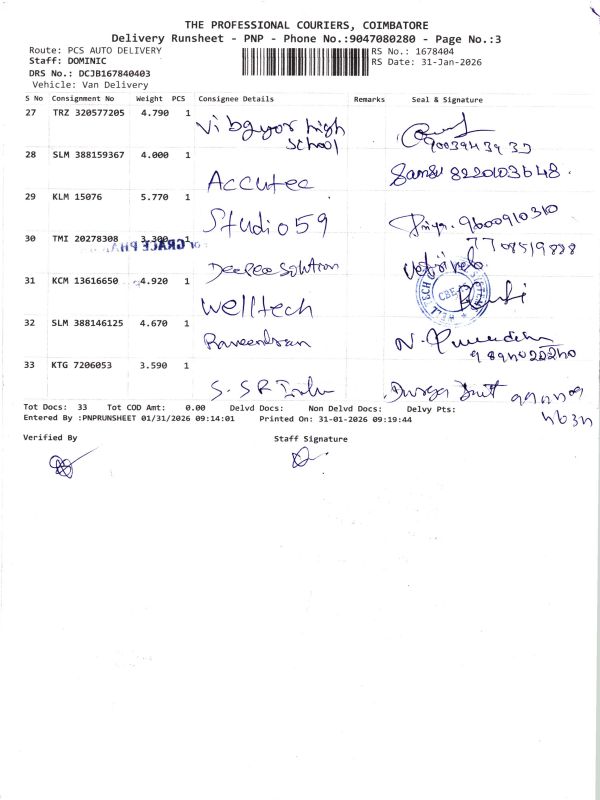 THE PROFESSIONAL COURIERS, COIMBATORE
Delivery Runsheet - PNP - Phone No.:9047080280 - Page No.:3
Route: PCS AUTO DELIVERY RS No.: 1678404
Staff: DOMINIC RS Date: 31-Jan-2026
DRS No.: DCJB167840403
Vehicle: Van Delivery
S No Consignment No Weight PCS Consignee Details Remarks Seal & Signature
27 TRZ 320577205 4.790 1 Vibgyor high
School
28 SLM 388159367 4.000 1 Accutec 8220103648.
29 KLM 15076 5.770 1 Studio59 Priya. 9600910310
30 TMI 20278308 3.300 1 Deepee Solution 7708519828
31 KCM 13616650 4.920 1 Welltech
CBE
32 SLM 388146125 4.670 1 Raveendran
33 KTG 7206053 3.590 1 S.SR Durga
Tot Docs: 33 Tot COD Amt: 0.00 Delvd Docs: Non Delvd Docs: Delvy Pts:
Entered By :PNPRUNSHEET 01/31/2026 09:14:01 Printed On: 31-01-2026 09:19:44
Verified By Staff Signature